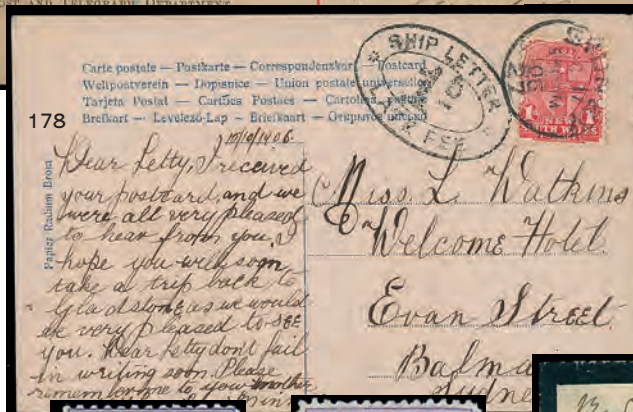 POST AND TELEGRAPH DEPARTMENT
178
Carte postale — Postkarte — Correspondenzkarte — Postcard
Weltpostverein — Dopisnice — Union postale universelle
Tarjeta Postal — Cartões Postaes — Cartolina
Brefkort — Levelező-Lap — Briefkaart —
SHIP LETTER
SOUTH WALES
Papier Radium Brom
Dear Letty, I received
your postcard, and we
were all very pleased
to hear from you, I
hope you will soon
take a trip back to
Gladstone as we would
be very pleased to see
you. Dear Letty don't fail
in writing soon. Please
remember me to your mother
Miss L. Watkins
Welcome Hotel
Evan Street